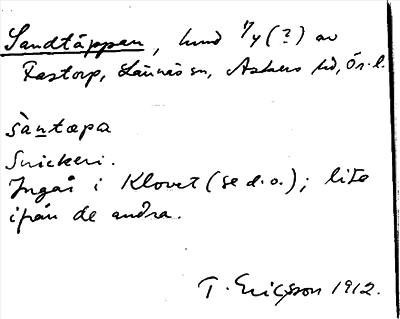 Sandtäppan, hmd 1/4 (?) av
Fastorp, Lännäs sn, Askers hd, Ör. l.
sàntæpa
Snickeri.
Ingår i Klovet (se d.o.); lite
ifrån de andra.
T. Ericsson 1912.